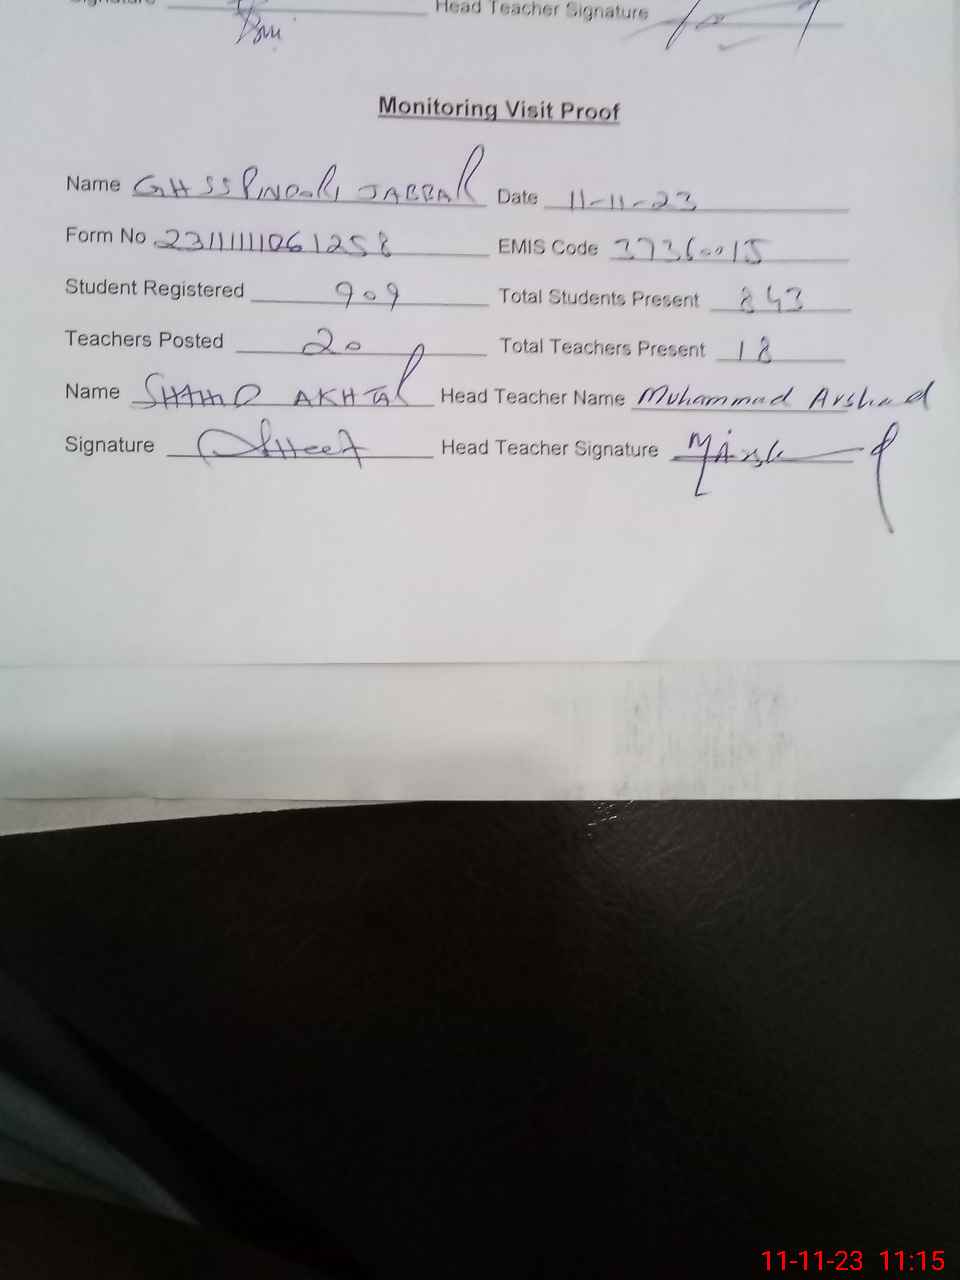 Signature Head Teacher Signature
Monitoring Visit Proof
Name GHSS PINDORI JABBAR Date 11-11-23
Form No 23111111061258 EMIS Code 37360015
Student Registered 909 Total Students Present 843
Teachers Posted 20 Total Teachers Present 18
Name SHAHID AKHTAR Head Teacher Name Muhammad Arshad
Signature Head Teacher Signature M Arshad
11-11-23 11:15